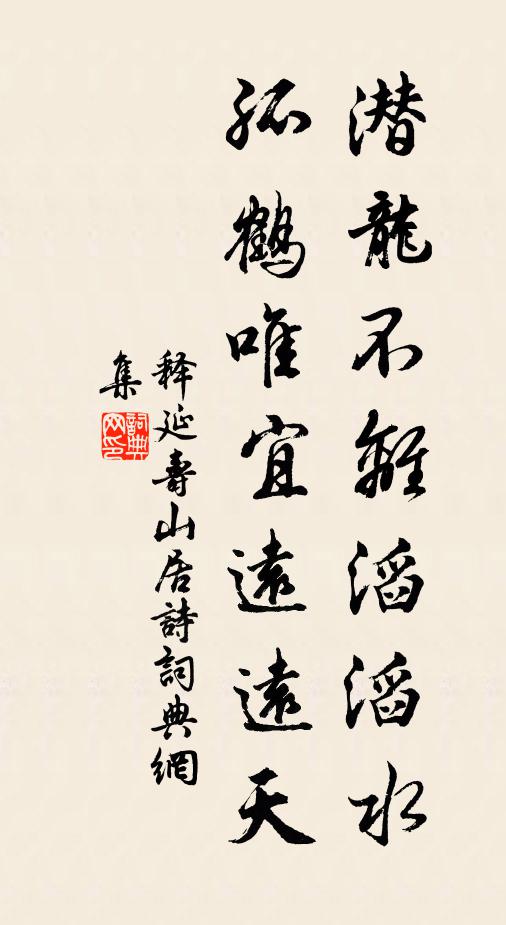 潜龍不離滔滔水
孤鶴唯宜遠遠天
释延壽山居詩詞典網
集
詞典网印